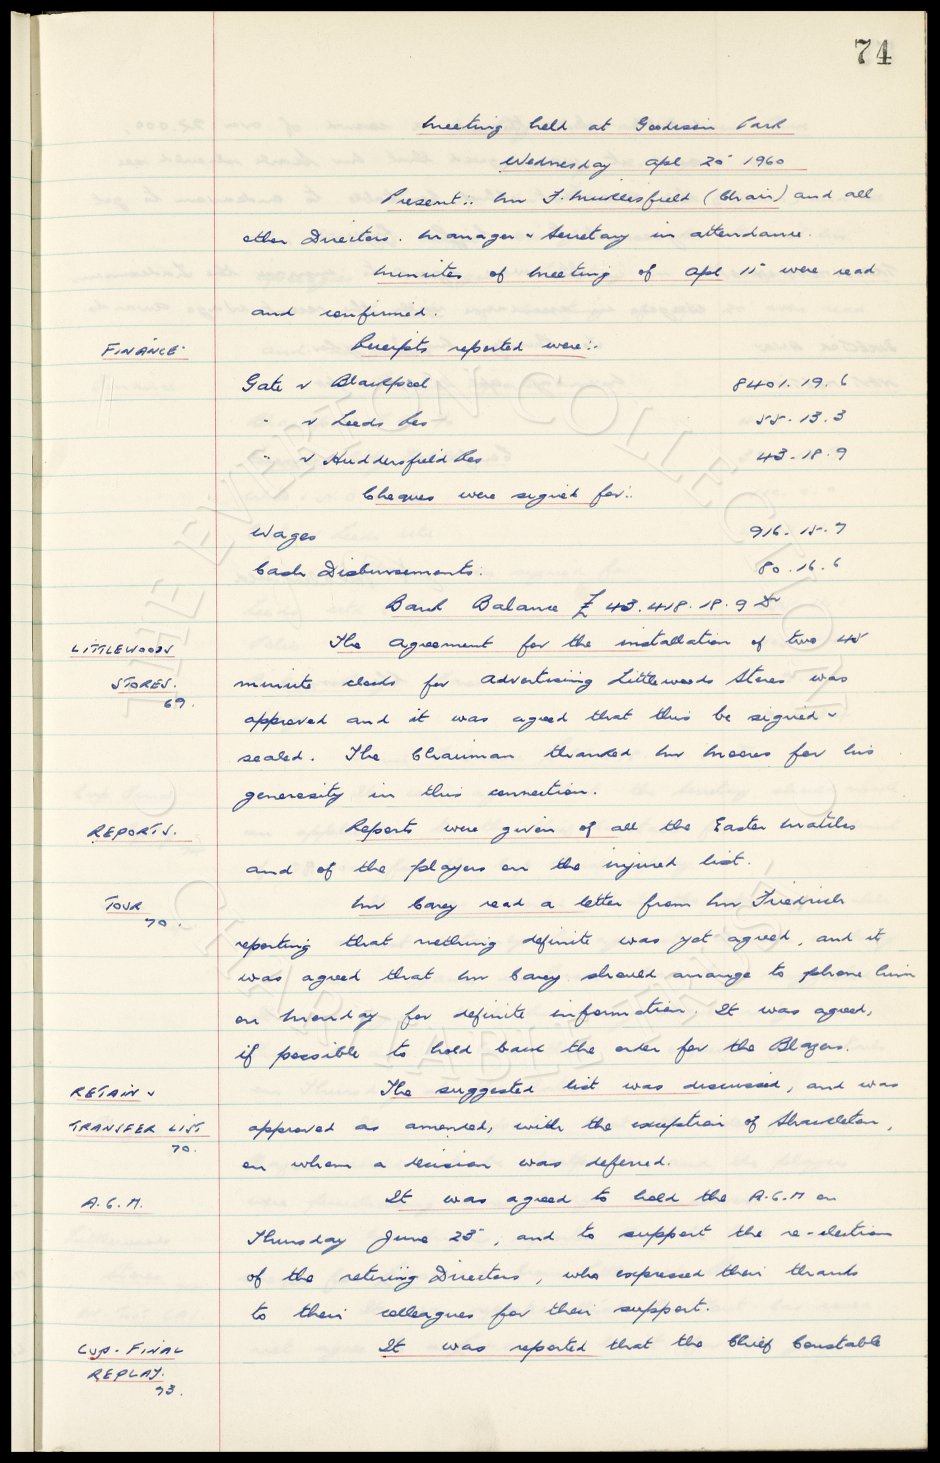 74
Meeting held at Goodison Park
Wednesday Apl 20 1960
Present:. Mr F. Micklesfield (Chair) and all
other Directors. Manager & Secretary in attendance.
Minutes of Meeting of Apl 15 were read
and confirmed.
FINANCE.
Receipts reported were:.
Gate v Blackpool 8401. 19. 6
" v Leeds Res 55. 13. 3
" v Huddersfield Res 43. 18. 9
Cheques were signed for:.
Wages 916. 15. 7
Cash Disbursements. 80. 16. 6
Bank Balance £ 43.418. 18. 9 Dr
LITTLEWOODS
STORES.
69.
The Agreement for the installation of two 45
minute clocks for advertising Littlewoods Stores was
approved and it was agreed that this be signed &
sealed. The Chairman thanked Mr Moores for his
generosity in this connection.
REPORTS.
Reports were given of all the Easter Matches
and of the players on the injured list.
TOUR
70.
Mr Carey read a letter from Mr Friedrich
reporting that nothing definite was yet agreed, and it
was agreed that Mr Carey should arrange to phone him
on Monday for definite information. It was agreed,
if possible to hold back the order for the Blazers.
RETAIN &
TRANSFER LIST
70.
The suggested list was discussed, and was
approved as amended, with the exception of Shackleton,
on whom a decision was deferred.
A.G.M.
It was agreed to hold the A.G.M on
Thursday June 23, and to support the re-election
of the retiring Directors, who expressed their thanks
to their colleagues for their support.
CUP-FINAL
REPLAY.
73.
It was reported that the Chief Constable
THE EVERTON COLLECTION
CHARITABLE TRUST